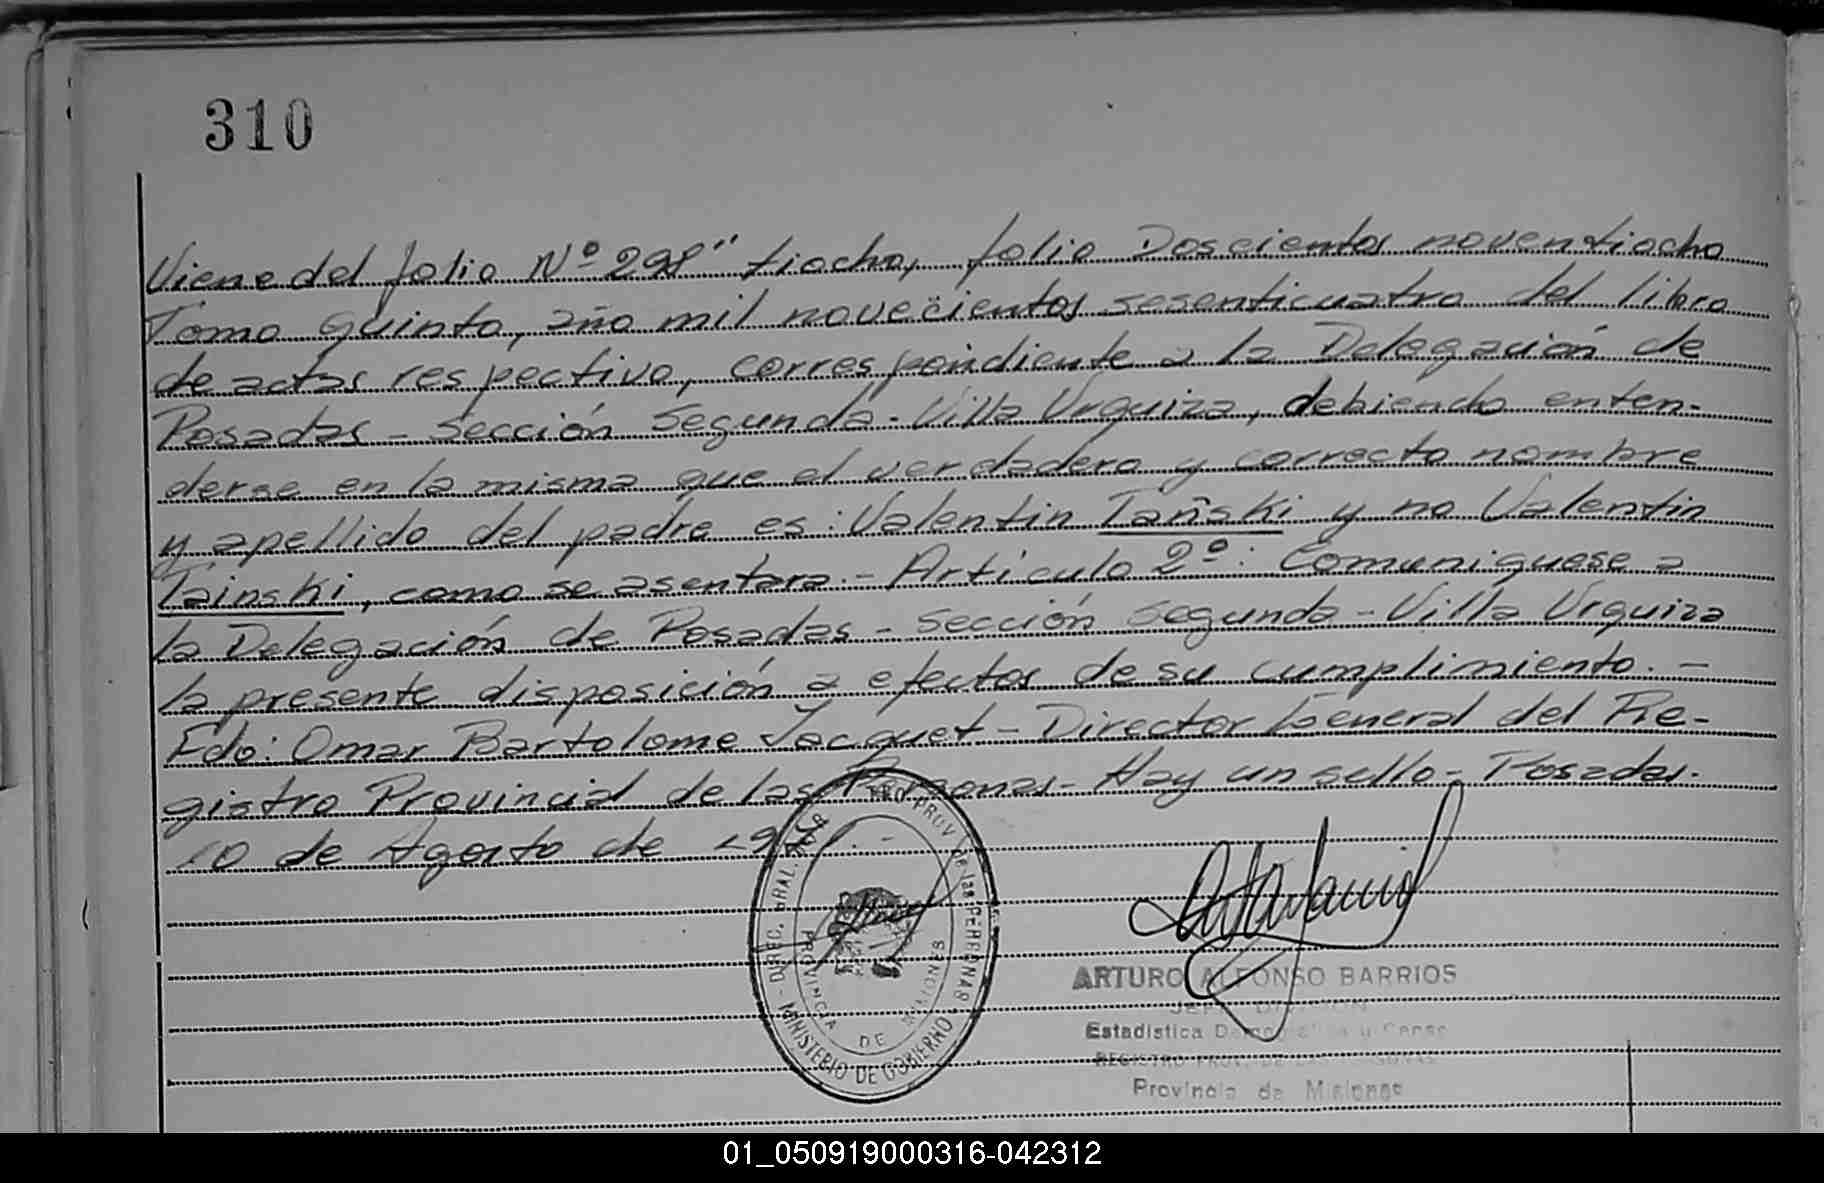 310
Viene del folio Nº 298" tiocho, folio Doscientos noventiocho
Tomo Quinto, año mil novecientos sesenticuatro del libro
de actas respectivo, correspondiente a la Delegación de
Posadas - Sección Segunda - Villa Urquiza, debiendo enten-
derse en la misma que el verdadero y correcto nombre
y apellido del padre es: Valentin Tañski y no Valentin
Tainski, como se asentara.- Articulo 2º: Comuniquese a
la Delegación de Posadas - Sección Segunda - Villa Urquiza
la presente disposición a efectos de su cumplimiento. -
Fdo: Omar Bartolome Jacquet - Director General del Re-
gistro Provincial de las Personas - Hay un sello - Posadas.
10 de Agosto de
DIREC. GRAL. PROV. de las PERSONAS
PROVINCIA DE MISIONES
MINISTERIO DE GOBIERNO
ARTURO ALFONSO BARRIOS
JEFE DIVISION
Estadistica y Censo
REGISTRO PROV. DE LAS PERSONAS
Provincia de Misiones
01_050919000316-042312